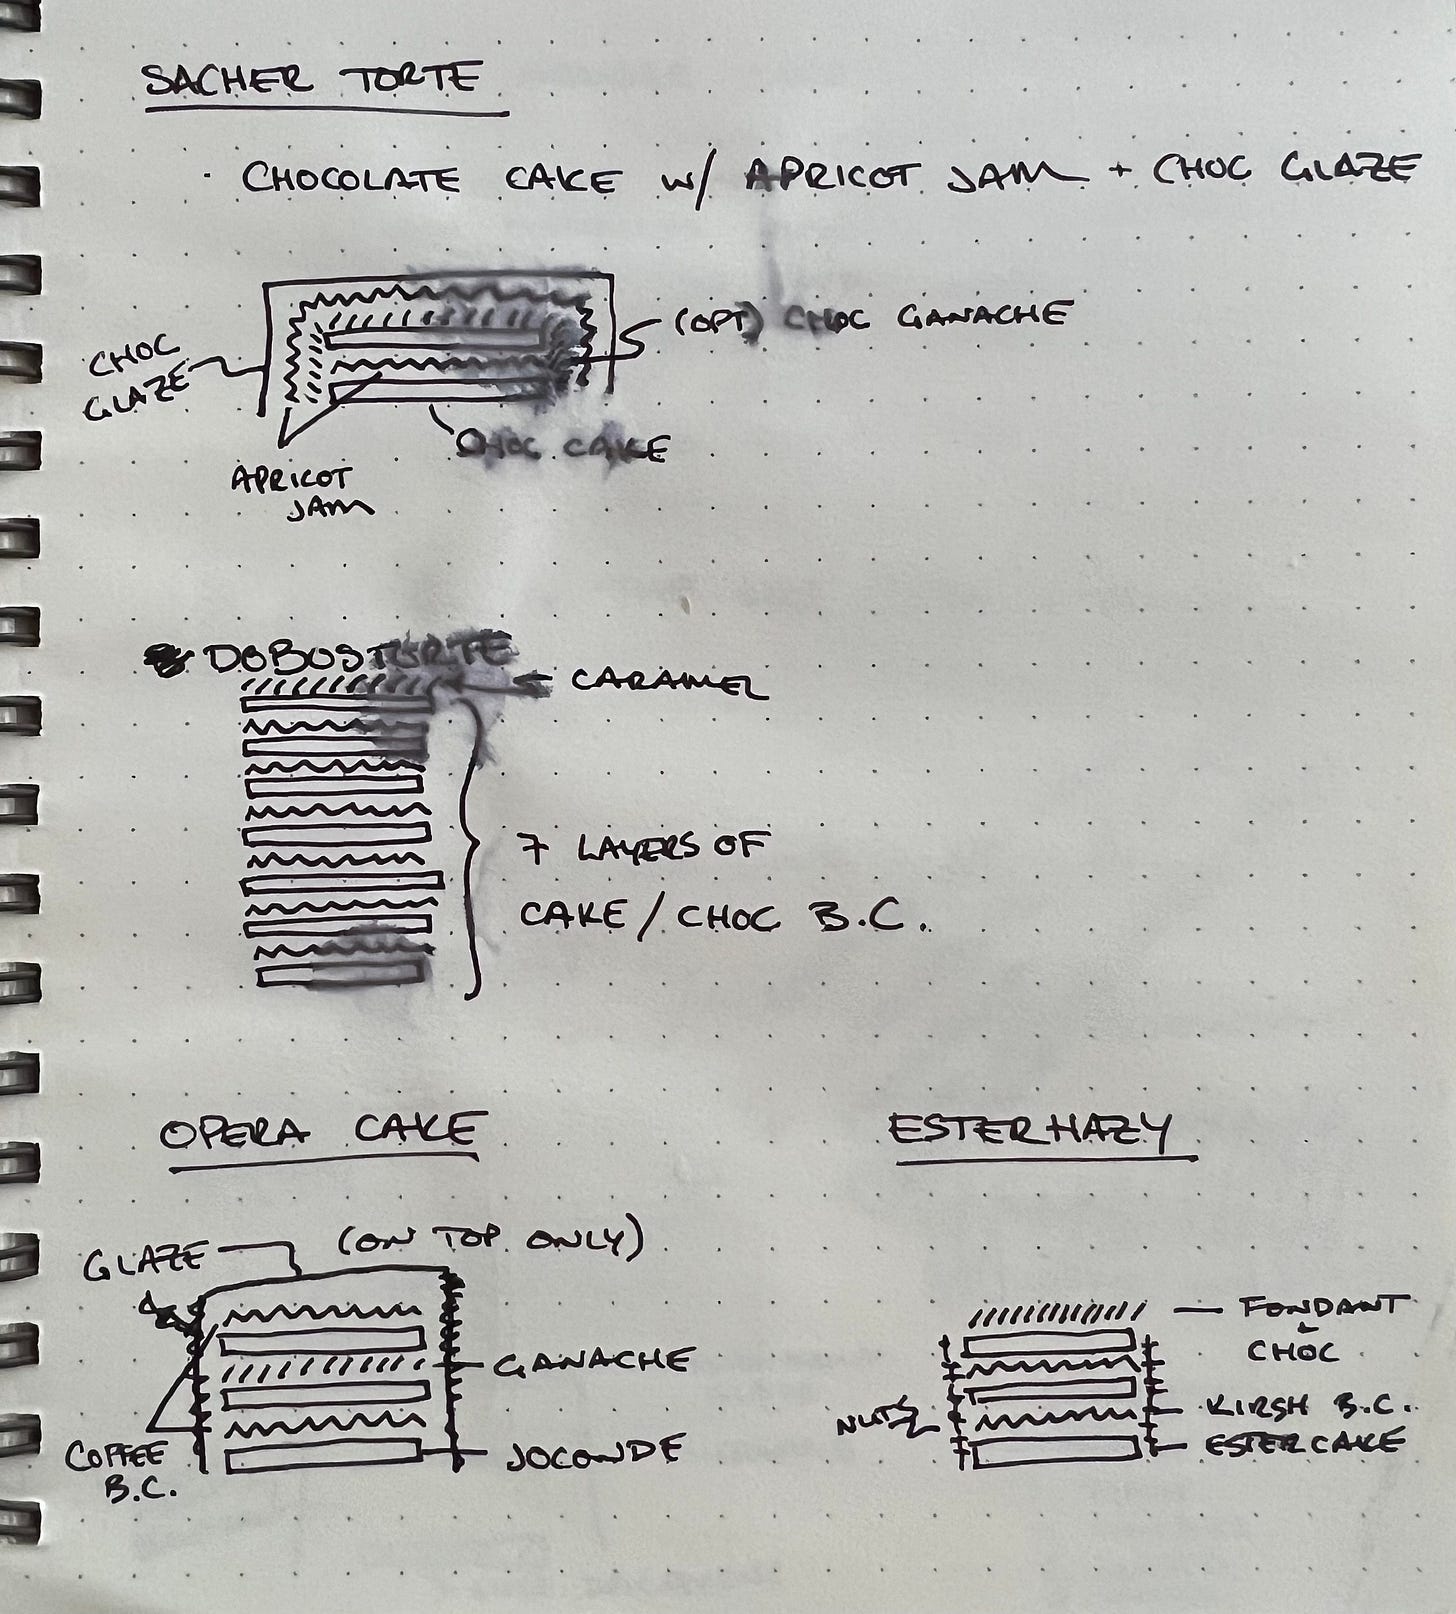 SACHER TORTE
· CHOCOLATE CAKE w/ APRICOT JAM + CHOC GLAZE
(OPT) CHOC GANACHE
CHOC
GLAZE
CHOC CAKE
APRICOT
JAM
DOBUSTORTE
CARAMEL
7 LAYERS OF
CAKE / CHOC B.C.
OPERA CAKE
GLAZE
(ON TOP ONLY)
GANACHE
JOCONDE
COFFEE
B.C.
ESTERHAZY
FONDANT
CHOC
NUTS
KIRSH B.C.
ESTERCAKE